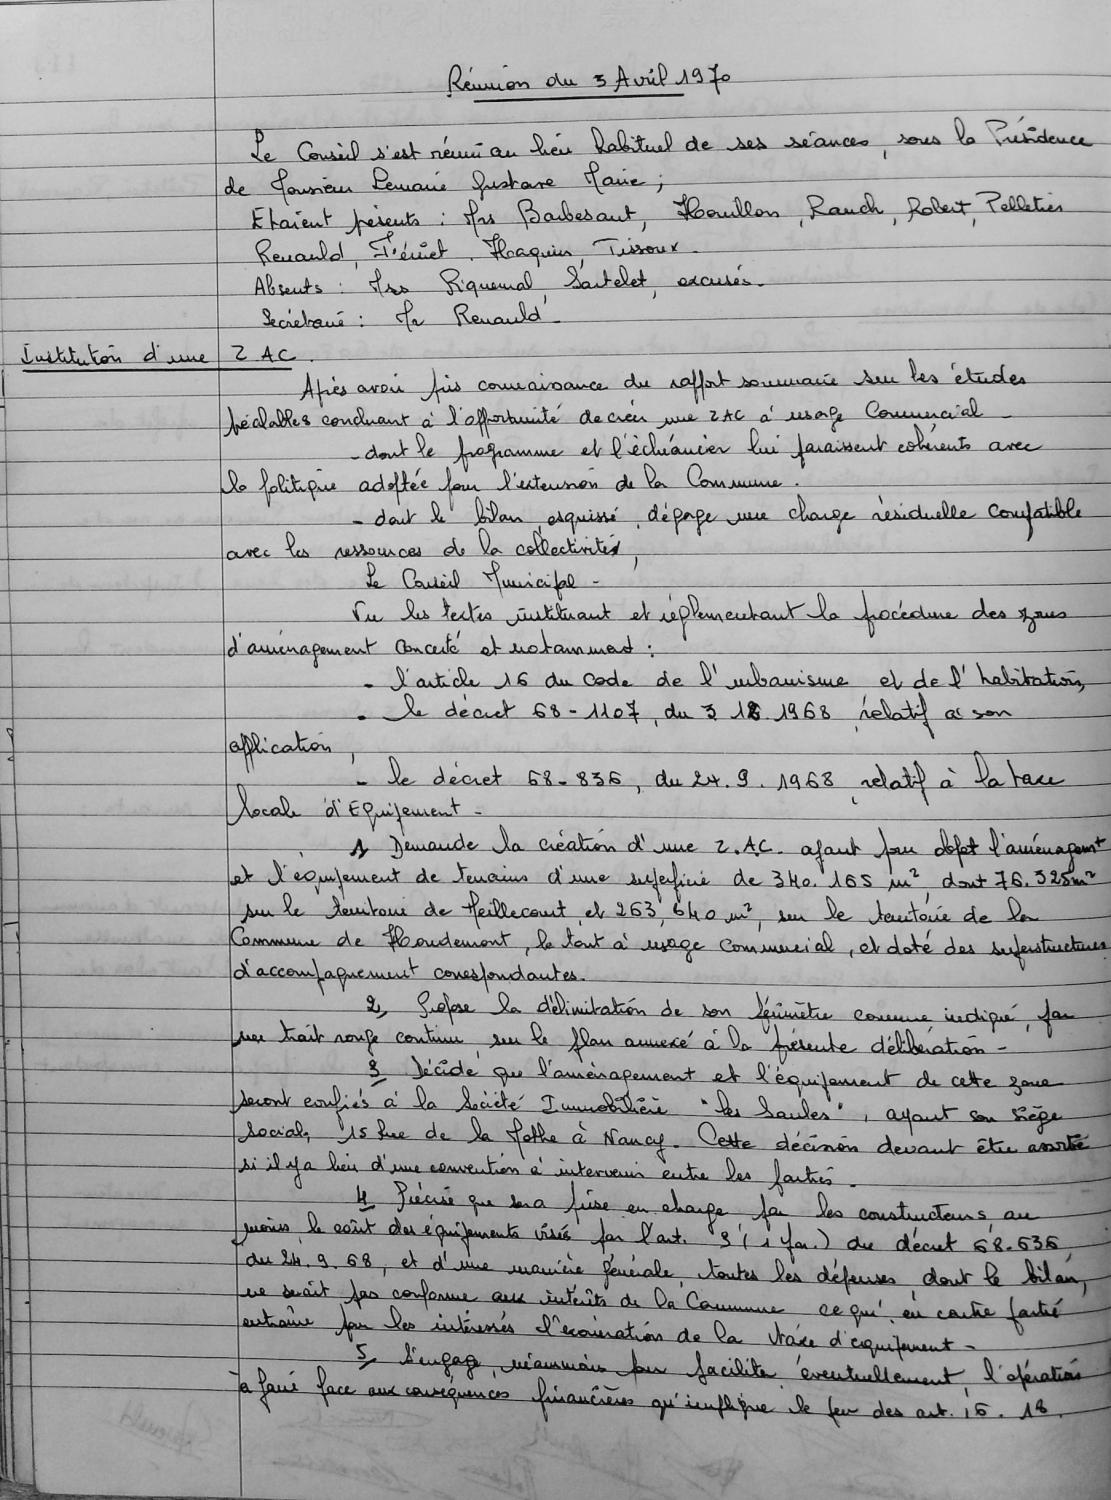 Réunion du 3 Avril 1970
Le Conseil s'est réuni au lieu habituel de ses séances, sous la Présidence
de Monsieur Lemarié Gustave Maire ;
Etaient présents : Mrs Barbesant, Houillon, Rauch, Robert, Pelletier
Renauld, Haquin, Tissoux.
Absents : Mrs Riquemal, Sartelet, excusés.
Secrétaire : Mr Renauld
Institution d'une ZAC.
Après avoir pris connaissance du rapport sommaire sur les études
préalables concluant à l'opportunité de créer une ZAC à usage Commercial -
- dont le programme et l'échéancier lui paraissent cohérents avec
la politique adoptée pour l'extension de la Commune.
- dont le bilan esquissé, dégage une charge résiduelle compatible
avec les ressources de la collectivité,
Le Conseil Municipal -
Vu les textes instituant et réglementant la procédure des zones
d'aménagement concerté et notamment :
- l'article 16 du Code de l'urbanisme et de l'habitation,
- le décret 68-1107, du 3 12 1968, relatif à son
application,
- le décret 68-836, du 24.9.1968, relatif à la taxe
locale d'Equipement -
1, Demande la création d'une Z.A.C. ayant pour objet l'aménagemt
et l'équipement de terrains d'une superficie de 340.165 m², dont 76.525 m²
sur le territoire de Heillecourt, et 263,640 m², sur le territoire de la
Commune de Houdemont, le tout à usage commercial, et doté des superstructures
d'accompagnement correspondantes.
2, Propose la délimitation de son périmètre comme indiqué, par
un trait rouge continu, sur le plan annexé à la présente délibération -
3, Décide que l'aménagement et l'équipement de cette zone
seront confiés à la Société Immobilière "les Saules", ayant son siège
social, 15 Rue de la Mothe à Nancy. Cette décision devant être assortie
si il y a lieu d'une convention à intervenir entre les parties.
4, Précise que sera prise en charge par les constructeurs, au
moins le coût des équipements visés par l'art. 3 (1 par.) du décret 68.636,
du 24.9.68, et d'une manière générale, toutes les dépenses dont le bilan,
ne serait pas conforme aux intérêts de la Commune ce qui en contre partie
entraîne pour les intéressés l'exonération de la taxe d'équipement -
5, S'engage, néanmoins pour faciliter éventuellement, l'opération
à faire face aux conséquences financières qu'implique le jeu des art. 16. 18.